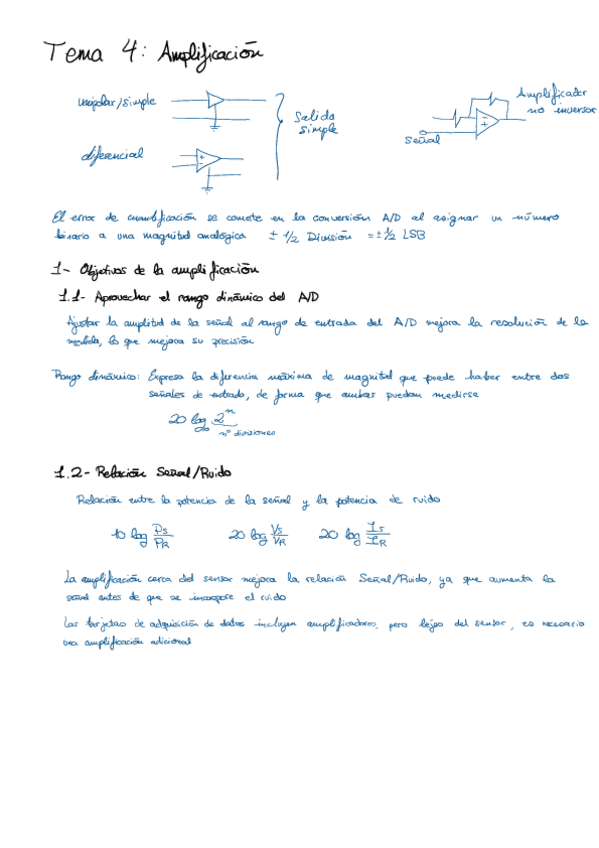 Tema 4: Amplificación
unipolar/simple
diferencial
Salida
simple
Amplificador
no inversor
Señal
El error de cuantificación se comete en la conversión A/D al asignar un número
binario a una magnitud analógica ± 1/2 División = ± 1/2 LSB
1- Objetivos de la amplificación
1.1- Aprovechar el rango dinámico del A/D
Ajustar la amplitud de la señal al rango de entrada del A/D mejora la resolución de la
medida, lo que mejora su precisión
Rango dinámico: Expresa la diferencia máxima de magnitud que puede haber entre dos
señales de entrada, de forma que ambas puedan medirse
20 log 2^n
nº divisiones
1.2- Relación Señal/Ruido
Relación entre la potencia de la señal y la potencia de ruido
10 log Ps/PR 20 log Vs/VR 20 log Is/IR
La amplificación cerca del sensor mejora la relación Señal/Ruido, ya que aumenta la
señal antes de que se incorpore el ruido
Las tarjetas de adquisición de datos incluyen amplificadores, pero lejos del sensor, es necesario
una amplificación adicional